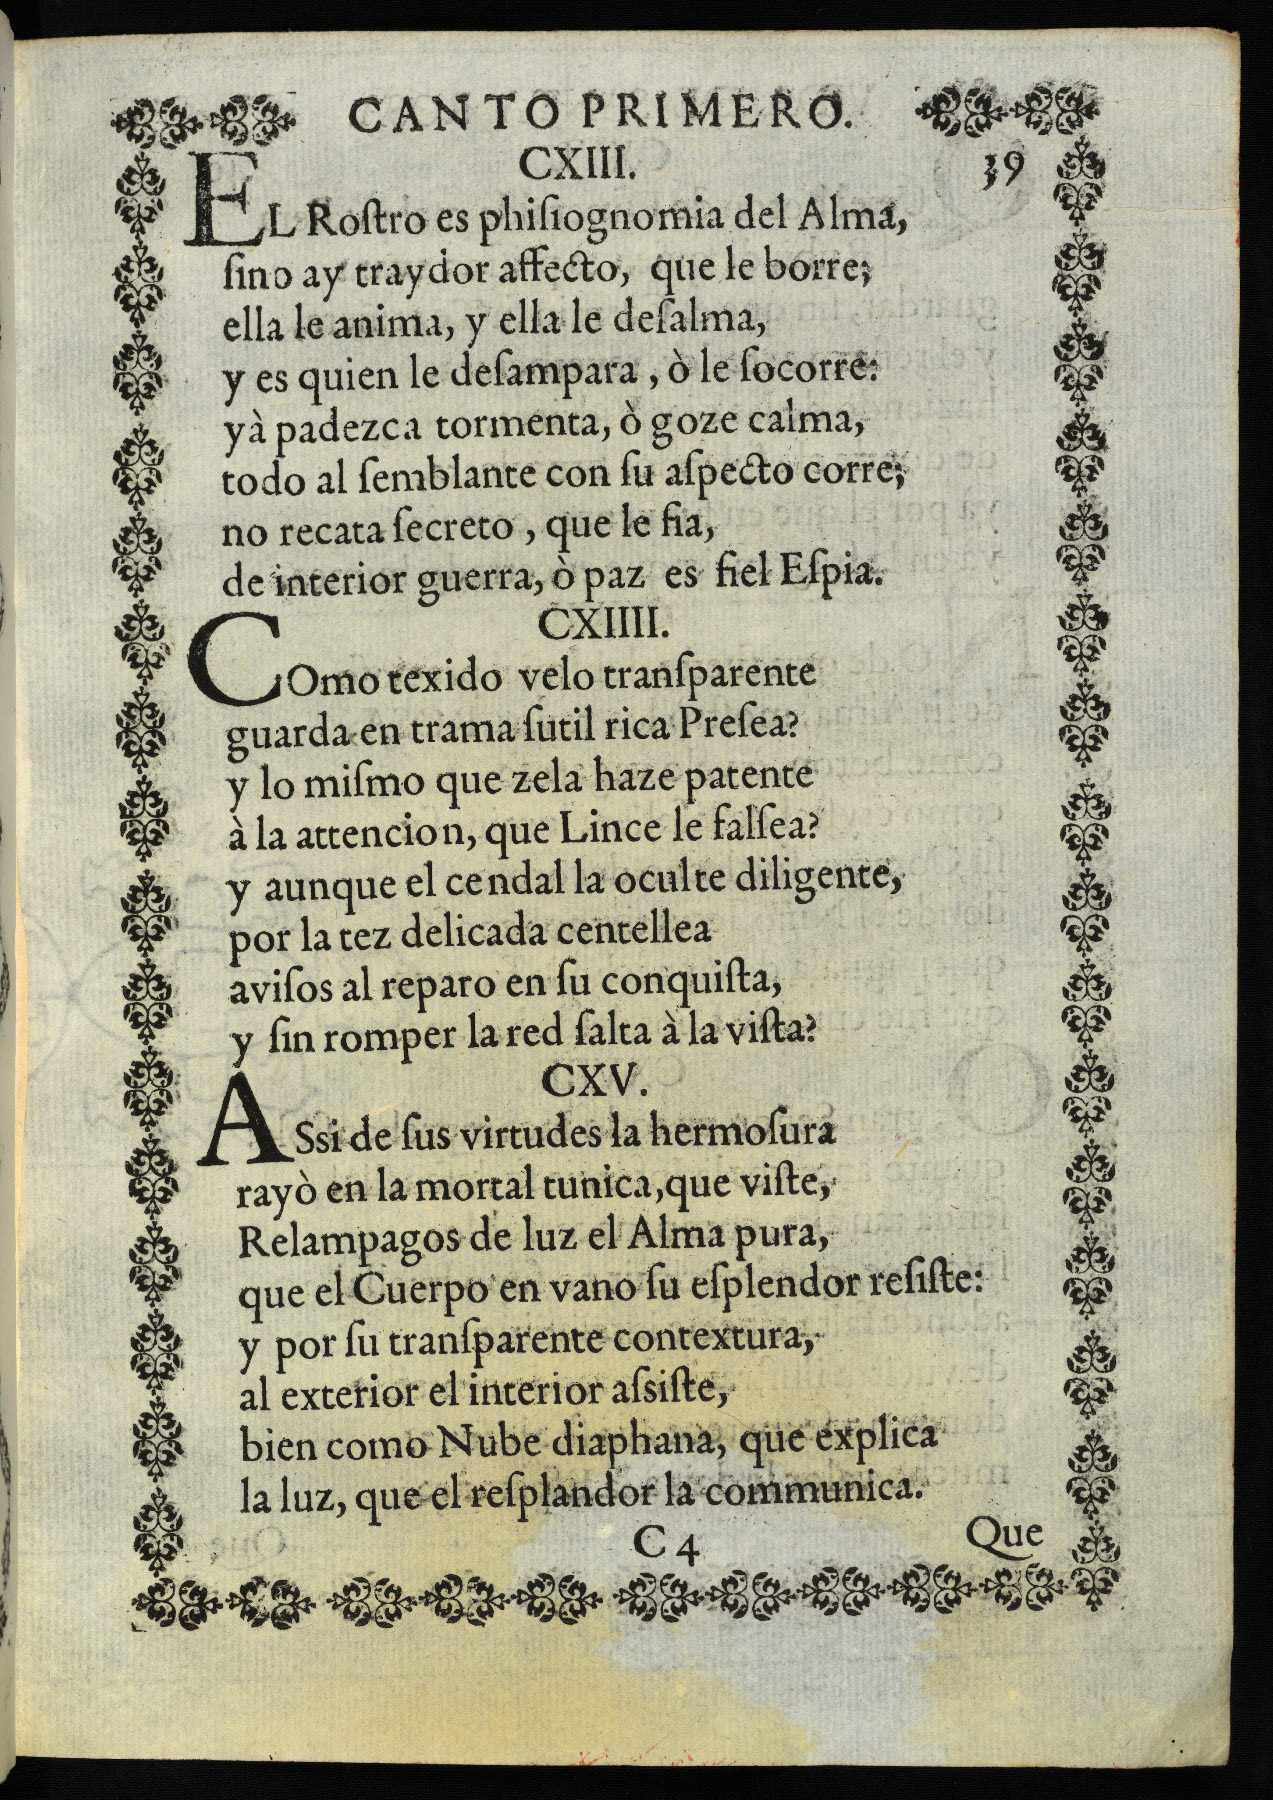 CANTO PRIMERO.
CXIII. 39
EL Roſtro es phiſiognomia del Alma,
ſino ay traydor affecto, que le borre;
ella le anima, y ella le deſalma,
y es quien le deſampara , ò le ſocorre:
yà padezca tormenta, ò goze calma,
todo al ſemblante con ſu aſpecto corre;
no recata ſecreto , que le fia,
de interior guerra, ò paz es fiel Eſpia.
CXIIII.
COmo texido velo tranſparente
guarda en trama ſutil rica Preſea?
y lo miſmo que zela haze patente
à la attencion, que Lince le falſea?
y aunque el cendal la oculte diligente,
por la tez delicada centellea
aviſos al reparo en ſu conquiſta,
y ſin romper la red ſalta à la viſta?
CXV.
ASsi de ſus virtudes la hermoſura
rayò en la mortal tunica,que viſte,
Relampagos de luz el Alma pura,
que el Cuerpo en vano ſu eſplendor reſiſte:
y por ſu tranſparente contextura,
al exterior el interior aſsiſte,
bien como Nube diaphana, que explica
la luz, que el reſplandor la communica.
C 4 Que